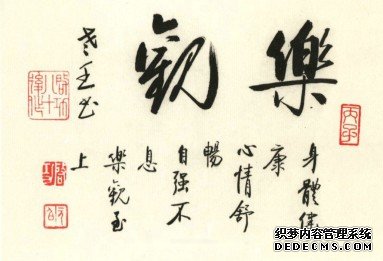 樂觀
身體健
康
心情舒
暢
自强不
息
樂觀至
上
织梦内容管理系统
DEDECMS.COM